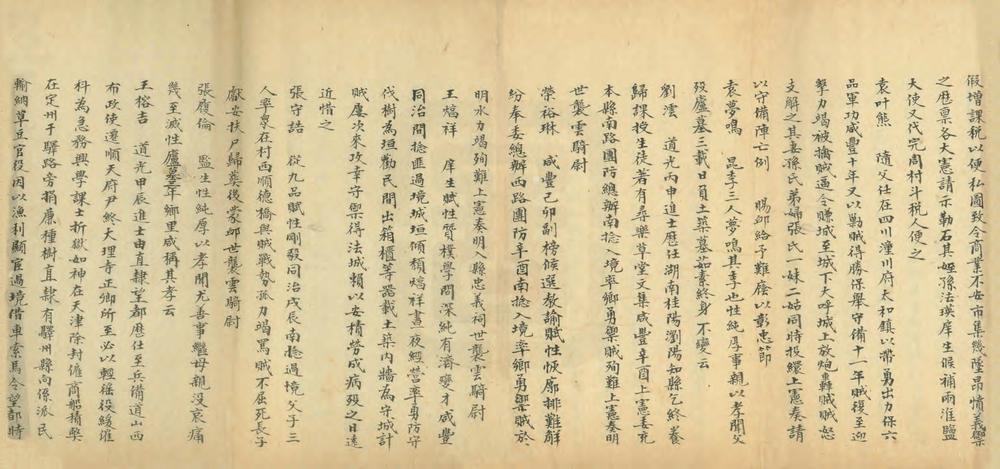 假增課稅以便私圖致令商業不安市集幾墮昂憤義縷
之歷稟各大憲請示勒石其姪孫法瑛庠生候補兩淮鹽
大使又代完周村斗稅人便之
袁叶熊　隨父仕在四川潼川府太和鎮以帶勇出力保六
品軍功咸豐十年又以勦賊得勝保舉守備十一年賊復至迎
擊力竭被擒賊逼令賺城至城下大呼城上放炮轟賊賊怒
支解之其妻孫氏弟婦張氏一妹二姑同時投繯上憲奏請
以守備陣亡例　賜卹給予難廕以彰忠節
袁夢鳴　昆季三人夢鳴其季也性純厚事親以孝聞父
歿廬墓三載日負土築墓茹素終身不變云
劉澐　道光丙申進士歷任湖南桂陽瀏陽知縣乞終養
歸課授生徒著有尋樂草堂文集咸豐辛酉上憲委充
本縣南路團防總辦南捻入境率鄉勇禦賊殉難上憲奏明
世襲雲騎尉
榮裕琳　咸豐己卯副榜候選教諭賦性恢廓排難解
紛奉委總辦西路團防辛酉南捻入境率鄉勇禦賊於
明水力竭殉難上憲奏明入縣忠義祠世襲雲騎尉
王熺祥　庠生賦性質樸學問深純有濟變才咸豐
同治間捻匪過境城垣傾頹熺祥晝夜經營率勇防守
伐樹為垣勸民間出箱櫃等器載土築內牆為守城計
賊屢次來攻幸守禦得法城賴以安積勞成病歿之日遠
近惜之
張守誥　從九品賦性剛毅同治戊辰南捻過境父子三
人率眾在村西順德橋與賊戰勢孤力竭罵賊不屈死長子
獻安扶尸歸葬後蒙卹世襲雲騎尉
張履倫　監生性純厚以孝聞尤善事繼母親沒哀痛
幾至滅性廬墓三年鄉里咸稱其孝云
王榕吉　道光甲辰進士由直隸望都歷任至兵備道山西
布政使遷順天府尹終大理寺正卿所至必以輕徭役緩催
科為急務興學課士折獄如神在天津除封僱商船積弊
在定州于驛路旁捐廉種樹直隸有驛州縣向係派民
輸納草豆官役因以漁利顯宦過境借車索馬令望都時